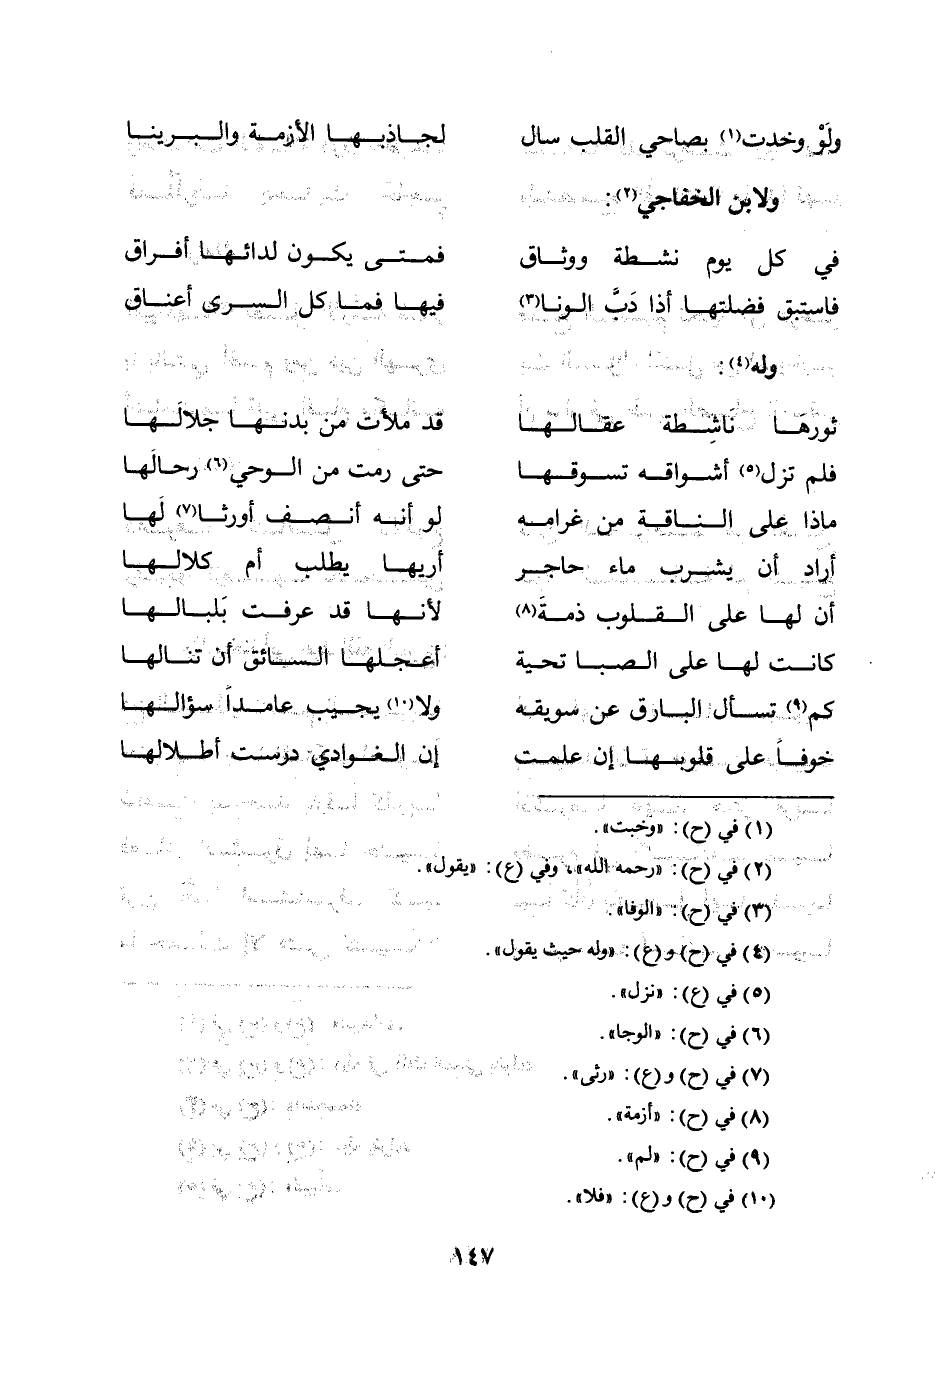 ولَوْ وخدت(١) بصاحي القلب سال لجاذبها الأزمة والبرينا
ولابن الخفاجي(٢):
في كل يوم نشطة ووثاق فمتى يكون لدائها أفراق
فاستبق فضلتها أذا دَبَّ الونا(٣) فيها فما كل السرى أعناق
وله(٤):
ثورهَا ناشِطة عقالها قد ملأت من بدنها جلالَها
فلم تزل(٥) أشواقه تسوقها حتى رمت من الوحي(٦) رحالَها
ماذا على الناقة من غرامه لو أنه أنصف أورثا(٧) لَها
أراد أن يشرب ماء حاجر أريها يطلب أم كلالها
أن لها على القلوب ذمةَ(٨) لأنها قد عرفت بَلبالها
كانت لها على الصبا تحية أعجلها السائق أن تنالها
كم(٩) تسأل البارق عن سويقه ولا(١٠) يجيب عامداً سؤالها
خوفاً على قلوبها إن علمت إن الغوادي درست أطلالها
(١) في (ح): «وخبت».
(٢) في (ح): «رحمه الله»، وفي (ع): «يقول».
(٣) في (ح): «الوفا».
(٤) في (ح) و(ع): «وله حيث يقول».
(٥) في (ع): «نزل».
(٦) في (ح): «الوجا».
(٧) في (ح) و(ع): «رثى».
(٨) في (ح): «أزمة».
(٩) في (ح): «لم».
(١٠) في (ح) و(ع): «فلا».
١٤٧